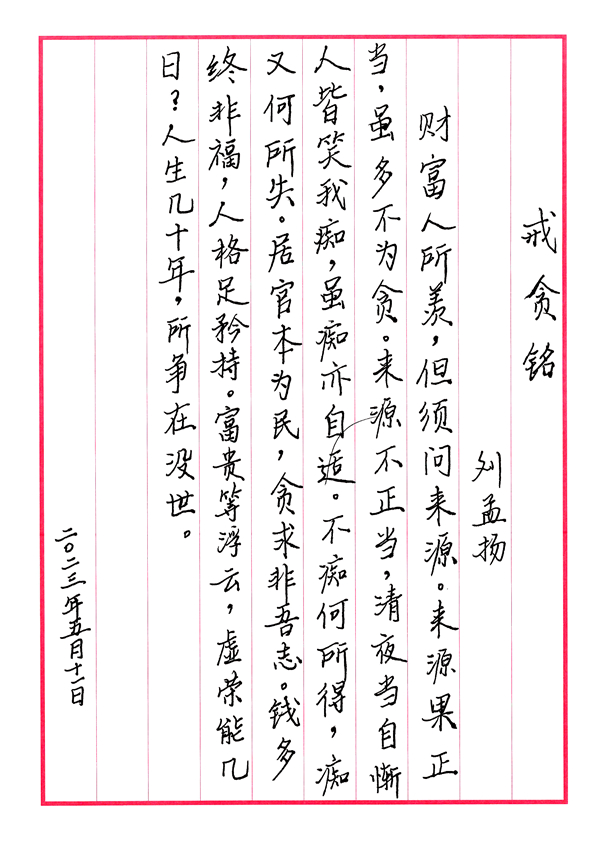 戒贪铭
刘孟扬
财富人所羡，但须问来源。来源果正
当，虽多不为贪。来源不正当，清夜当自惭
人皆笑我痴，虽痴亦自適。不痴何所得，痴
又何所失。居官本为民，贪求非吾志。钱多
终非福，人格足矜持。富贵等浮云，虚荣能几
日？人生几十年，所争在没世。
二〇二三年五月十一日